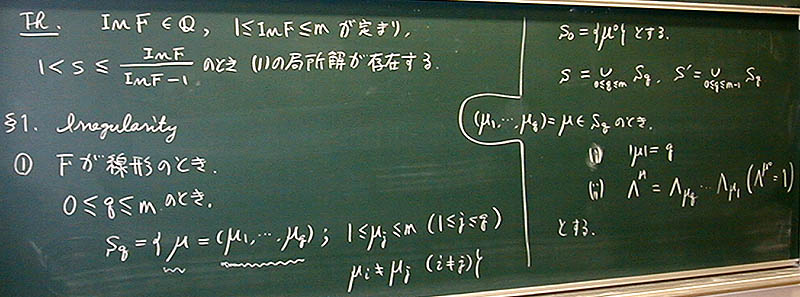 Th. Irr F ∈ Q, 1 ≤ Irr F ≤ m が定まり,
1 < s ≤ Irr F / (Irr F - 1) のとき (1)の局所解が存在する.
§1. Irregularity
① Fが線形のとき.
0 ≤ q ≤ m のとき.
S_q = { μ = (μ_1, ..., μ_q) ; 1 ≤ μ_j ≤ m (1 ≤ j ≤ q)
μ_i ≠ μ_j (i ≠ j) }
S_0 = {μ^0} とする.
S = ∪_{0≤q≤m} S_q, S' = ∪_{0≤q≤m-1} S_q
(μ_1, ..., μ_q) = μ ∈ S_q のとき.
(i) |μ| = q
(ii) Λ^μ = Λ_{μ_q} ... Λ_{μ_1} (Λ^{μ^0} = 1)
とする.